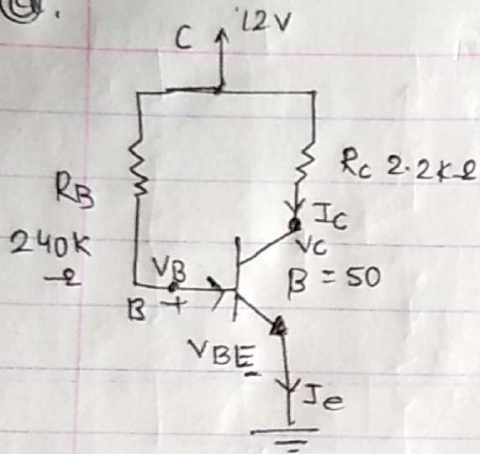 C 12V
RB
240K
Ω
Rc 2.2KΩ
Ic
Vc
VB
B +
β = 50
VBE
Ie